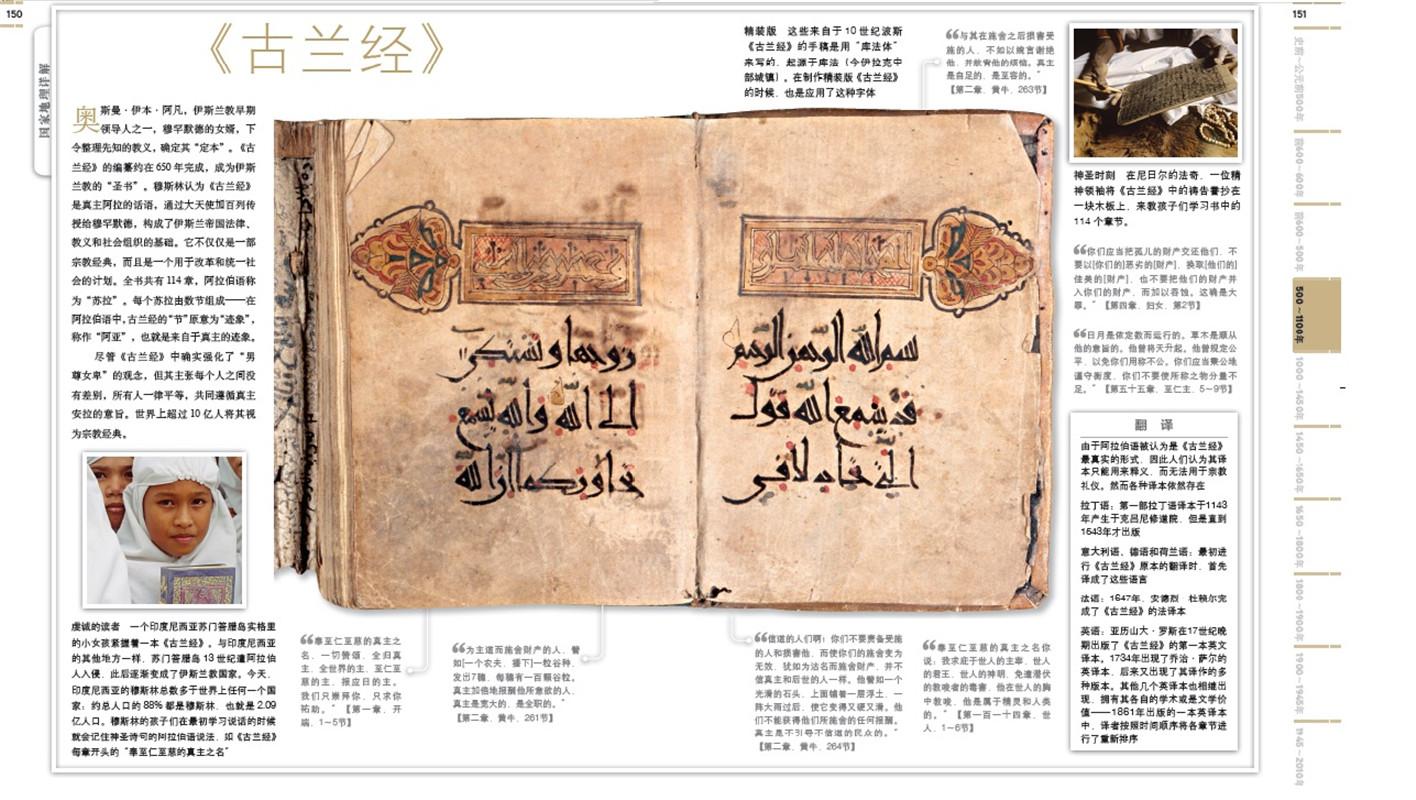 150
国家地理详解
《古兰经》
奥斯曼·伊本·阿凡，伊斯兰教早期
领导人之一，穆罕默德的女婿，下
令整理先知的教义，确定其“定本”。《古
兰经》的编纂约在 650 年完成，成为伊斯
兰教的“圣书”。穆斯林认为《古兰经》
是真主阿拉的话语，通过大天使加百列传
授给穆罕默德，构成了伊斯兰帝国法律、
教义和社会组织的基础。它不仅仅是一部
宗教经典，而且是一个用于改革和统一社
会的计划。全书共有 114 章，阿拉伯语称
为“苏拉”。每个苏拉由数节组成——在
阿拉伯语中，古兰经的“节”原意为“迹象”，
称作“阿亚”，也就是来自于真主的迹象。
尽管《古兰经》中确实强化了“男
尊女卑”的观念，但其主张每个人之间没
有差别，所有人一律平等，共同遵循真主
安拉的意旨。世界上超过 10 亿人将其视
为宗教经典。
虔诚的读者　一个印度尼西亚苏门答腊岛实格里
的小女孩紧握着一本《古兰经》。与印度尼西亚
的其他地方一样，苏门答腊岛 13 世纪遭阿拉伯
人入侵，此后逐渐变成了伊斯兰教国家。今天，
印度尼西亚的穆斯林总数多于世界上任何一个国
家：约总人口的 88% 都是穆斯林，也就是 2.09
亿人口。穆斯林的孩子们在最初学习说话的时候
就会记住神圣诗句的阿拉伯语说法，如《古兰经》
每章开头的“奉至仁至慈的真主之名”
精装版　这些来自于 10 世纪波斯
《古兰经》的手稿是用“库法体”
来写的，起源于库法（今伊拉克中
部城镇）。在制作精装版《古兰经》
的时候，也是应用了这种字体
“与其在施舍之后损害受
施的人，不如以婉言谢绝
他，并赦宥他的烦恼。真主
是自足的，是至容的。”
【第二章，黄牛，263节】
“奉至仁至慈的真主之
名，一切赞颂，全归真
主，全世界的主，至仁至
慈的主，报应日的主。
我们只崇拜你，只求你
祐助。”【第一章，开
端，1~5节】
“为主道而施舍财产的人，譬
如[一个农夫，播下]一粒谷种，
发出7穗，每穗有一百颗谷粒。
真主加倍地报酬他所意欲的人，
真主是宽大的，是全职的。”
【第二章，黄牛，261节】
“信道的人们啊！你们不要责备受施
的人和损害他，而使你们的施舍变为
无效，犹如为沽名而施舍财产，并不
信真主和后世的人一样。他譬如一个
光滑的石头，上面铺着一层浮土，一
阵大雨过后，使它变得又硬又滑。他
们不能获得他们所施舍的任何报酬。
真主是不引导不信道的民众的。”
【第二章，黄牛，264节】
“奉至仁至慈的真主之名你
说：我求庇于世人的主宰，世人
的君王，世人的神明，免遭潜伏
的教唆者的毒害，他在世人的胸
中教唆，他是属于精灵和人类
的。”【第一百一十四章，世
人，1~6节】
151
神圣时刻　在尼日尔的法奇，一位精
神领袖将《古兰经》中的祷告誊抄在
一块木板上，来教孩子们学习书中的
114 个章节。
“你们应当把孤儿的财产交还他们，不
要以[你们的]恶劣的[财产]，换取[他们的]
佳美的[财产]，也不要把他们的财产并
入你们的财产，而加以吞蚀。这确是大
罪。”【第四章，妇女，第2节】
“日月是依定数而运行的。草木是顺从
他的意旨的。他曾将天升起。他曾规定公
平，以免你们用称不公。你们应当秉公地
谨守衡度，你们不要使所称之物分量不
足。”【第五十五章，至仁主，5~9节】
翻 译
由于阿拉伯语被认为是《古兰经》
最真实的形式，因此人们认为其译
本只能用来释义，而无法用于宗教
礼仪。然而各种译本依然存在
拉丁语：第一部拉丁语译本于1143
年产生于克吕尼修道院，但是直到
1543年才出版
意大利语、德语和荷兰语：最初进
行《古兰经》原本的翻译时，首先
译成了这些语言
法语：1647年，安德烈·杜赫尔完
成了《古兰经》的法译本
英语：亚历山大·罗斯在17世纪晚
期出版了《古兰经》的第一本英文
译本。1734年出现了乔治·萨尔的
英译本，后来又出现了其译作的多
种版本。其他几个英译本也相继出
现，拥有其各自的学术或是文学价
值——1861年出版的一本英译本
中，译者按照时间顺序将各章节进
行了重新排序
史前~公元前500年
前600~600年
前600~500年
500~1100年
1000~1450年
1450~1650年
1650~1800年
1800~1900年
1900~1945年
1945~2010年